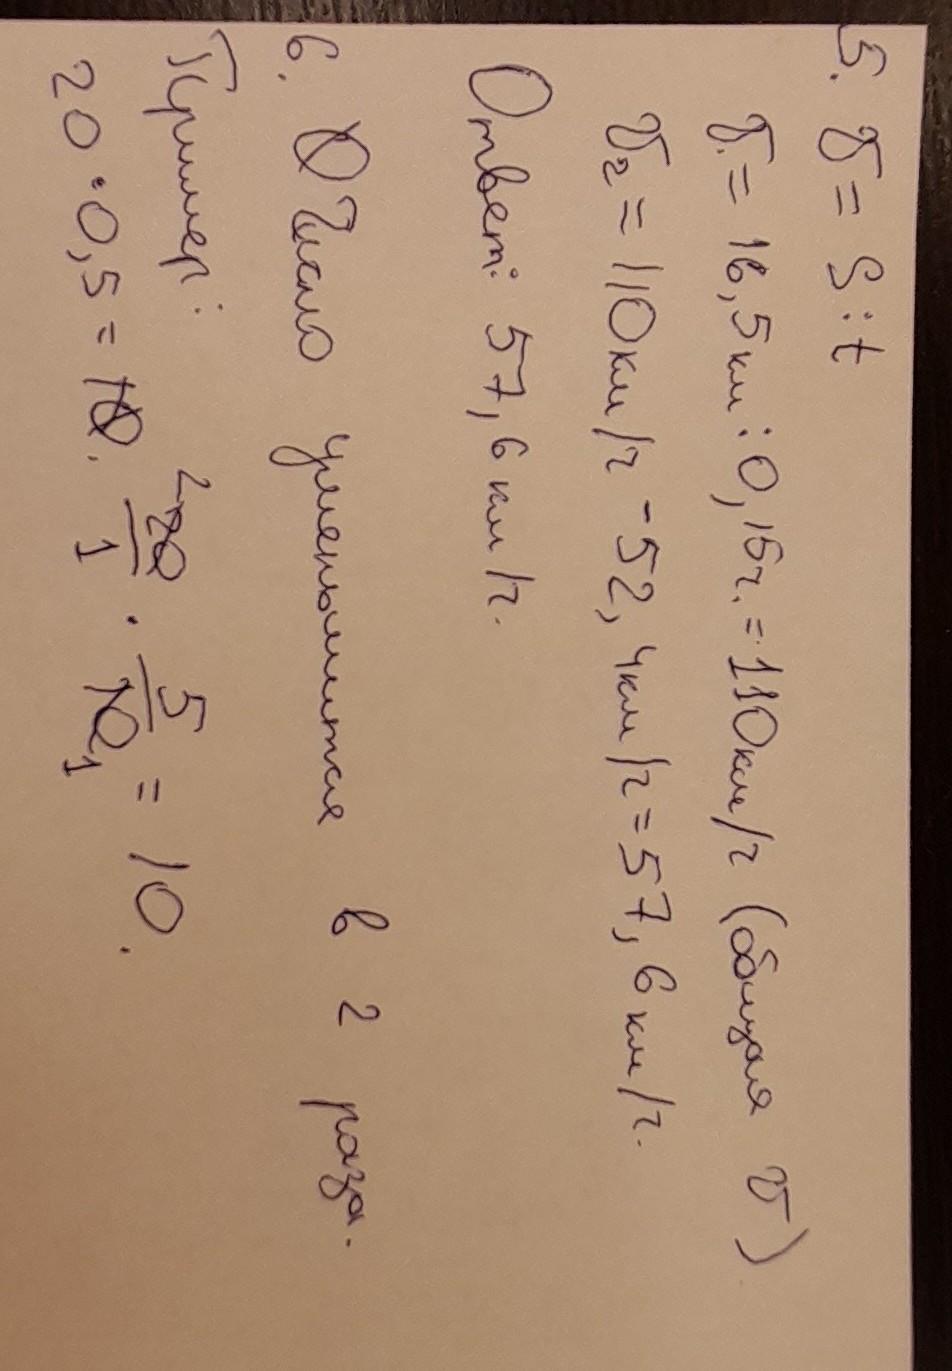 5. V = S : t
V. = 16,5 км : 0,15 ч. = 110 км/ч (общая V)
V2 = 110 км/ч - 52,4 км/ч = 57,6 км/ч.
Ответ: 57,6 км/ч.
6. Число уменьшится в 2 раза.
Пример:
20 · 0,5 = 20/1 · 5/10 = 10.